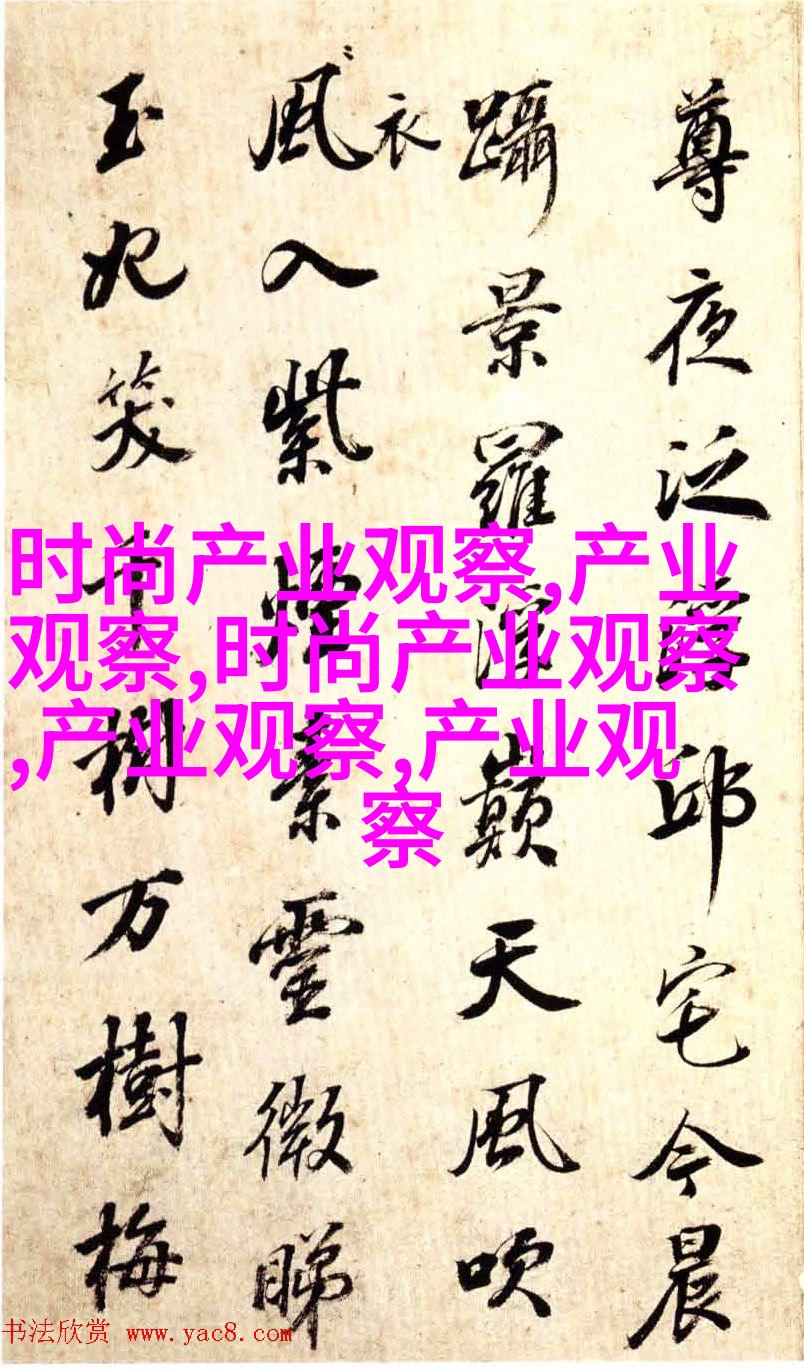 尊夜泛邱宅今晨
躡景羅巔天風吹
衣
風入紫煙靈微睇
玉妃笑千樹万樹梅
时尚产业观察,产业
观察,时尚产业观察
,产业观察,产业观
察
书法欣赏 www.yac8.com